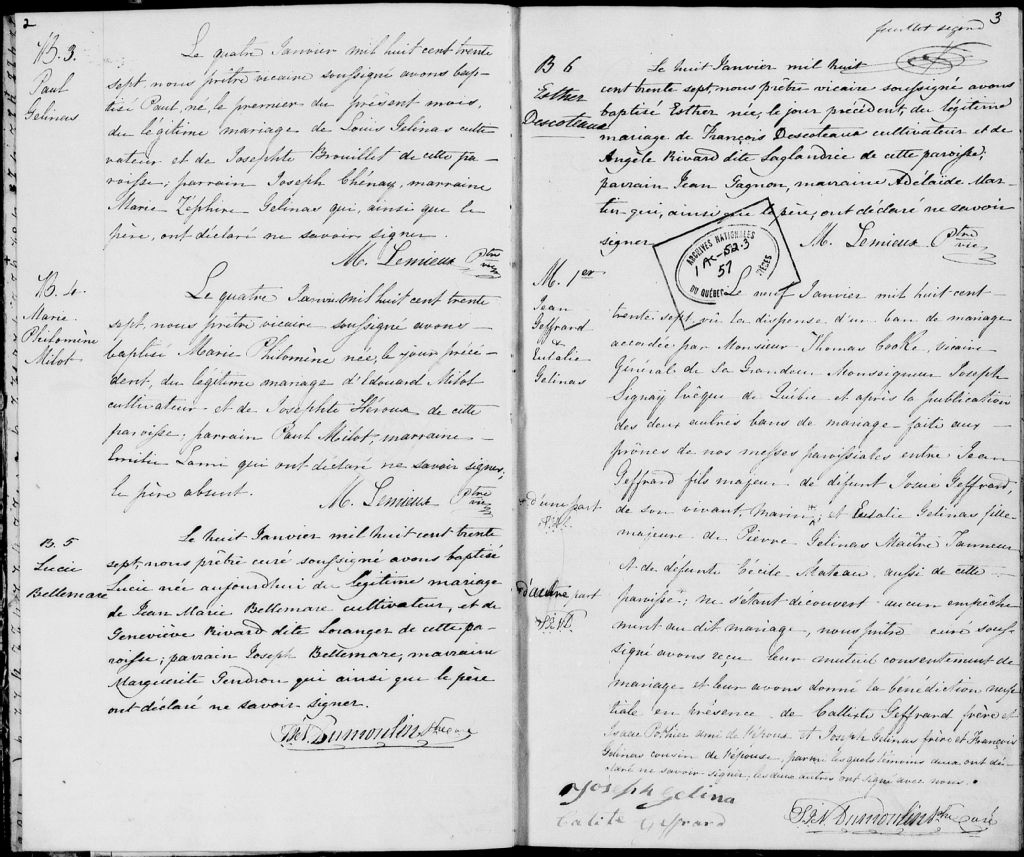 2
B. 3.
Paul
Gelinas
Le quatre Janvier mil huit cent trente
sept, nous prêtre vicaire soussigné avons bap-
tisé Paul, né le premier du présent mois,
du légitime mariage de Louis Gelinas culti
vateur et de Josephte Brouillet de cette pa-
roisse; parrain Joseph Chénay, marraine
Marie Zéphire Gelinas qui, ainsi que le
père, ont déclaré ne savoir signer.
M. Lemieux Ptre
vic
B. 4.
Marie
Philomène
Milot
Le quatre Janvier mil huit cent trente
sept, nous prêtre vicaire soussigné avons
baptisé Marie Philomène née, le jour précé-
dent, du légitime mariage d'Edouard Milot
cultivateur et de Josephte Héroux de cette
paroisse; parrain Paul Milot, marraine
Emilie Lami qui ont déclaré ne savoir signer,
le père absent.
M. Lemieux Ptre
vic
B. 5
Lucie
Bellemare
Le huit Janvier mil huit cent trente
sept, nous prêtre curé soussigné avons baptisé
Lucie née aujourd'hui du legitime mariage
de Jean Marie Bellemare cultivateur, et de
Geneviève Rivard dite Loranger de cette pa-
roisse; parrain Joseph Bellemare, marraine
Marguerite Gendron qui ainsi que le père
ont déclaré ne savoir signer.
Dumoulin Ptre Curé
3
feuillet second
B 6
Esther
Descoteaux
Le huit Janvier mil huit
cent trente sept, nous prêtre vicaire soussigné avons
baptisé Esther née, le jour précédent, du légitime
mariage de François Descoteaux cultivateur et de
Angèle Rivard dite Laglandrée de cette paroisse;
parrain Jean Gagnon, marraine Adélaide Mar-
qui, ainsi que le père, ont déclaré ne savoir
signer
M. Lemieux Ptre
vic
ARCHIVES NATIONALES
1 Ac-52-3
57
DU QUÉBEC PIÈCES
M. 1er
Jean
Geffrard
&
Eulalie
Gelinas
Le neuf Janvier mil huit cent
trente sept vû la dispense d'un ban de mariage
accordée par Monsieur Thomas Cooke, vicaire
Général de Sa Grandeur Monseigneur Joseph
Signay Evêque de Québec et après la publication
des deux autres bans de mariage faite aux
prônes de nos messes paroissiales entre Jean
Geffrard fils majeur de défunt Josué Geffrard,
de son vivant, marin; et Eulalie Gelinas fille
d'une part
majeure de Pierre Gelinas Maître Tanneur
et de défunte Cécile Mateau aussi de cette
d'autre part
paroisse; ne s'étant découvert aucun empêche
ment au dit mariage, nous prêtre curé sous-
signé avons reçu leur mutuel consentement de
mariage et leur avons donné la bénédiction nup
tiale en présence de Calliste Geffrard frère et
Isaac Pothier ami de l'époux et Joseph Gelinas frère et François
Gelinas cousin de l'épouse, parmi lesquels témoins deux ont dé-
claré ne savoir signer, les deux autres ont signé avec nous.
Joseph Gelina
Calite Geffrard
Dumoulin Ptre Curé